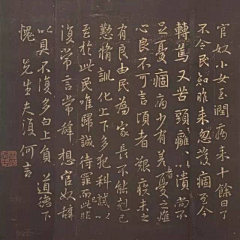 官奴小女玉潤病来十餘日了
不令民知昨来忽發痼至今
轉篤又苦頭癰頭癰以潰尚不
足憂痼病少有差者憂之燋
心良不可言頃者艱疾未之
有良由民為家長不能克己
勤修訓化上下多犯科誡以
至於此民唯歸誠待罪而已此非
復常言常辭想官奴辭
以具不復多白上負道德下
愧先生夫復何言